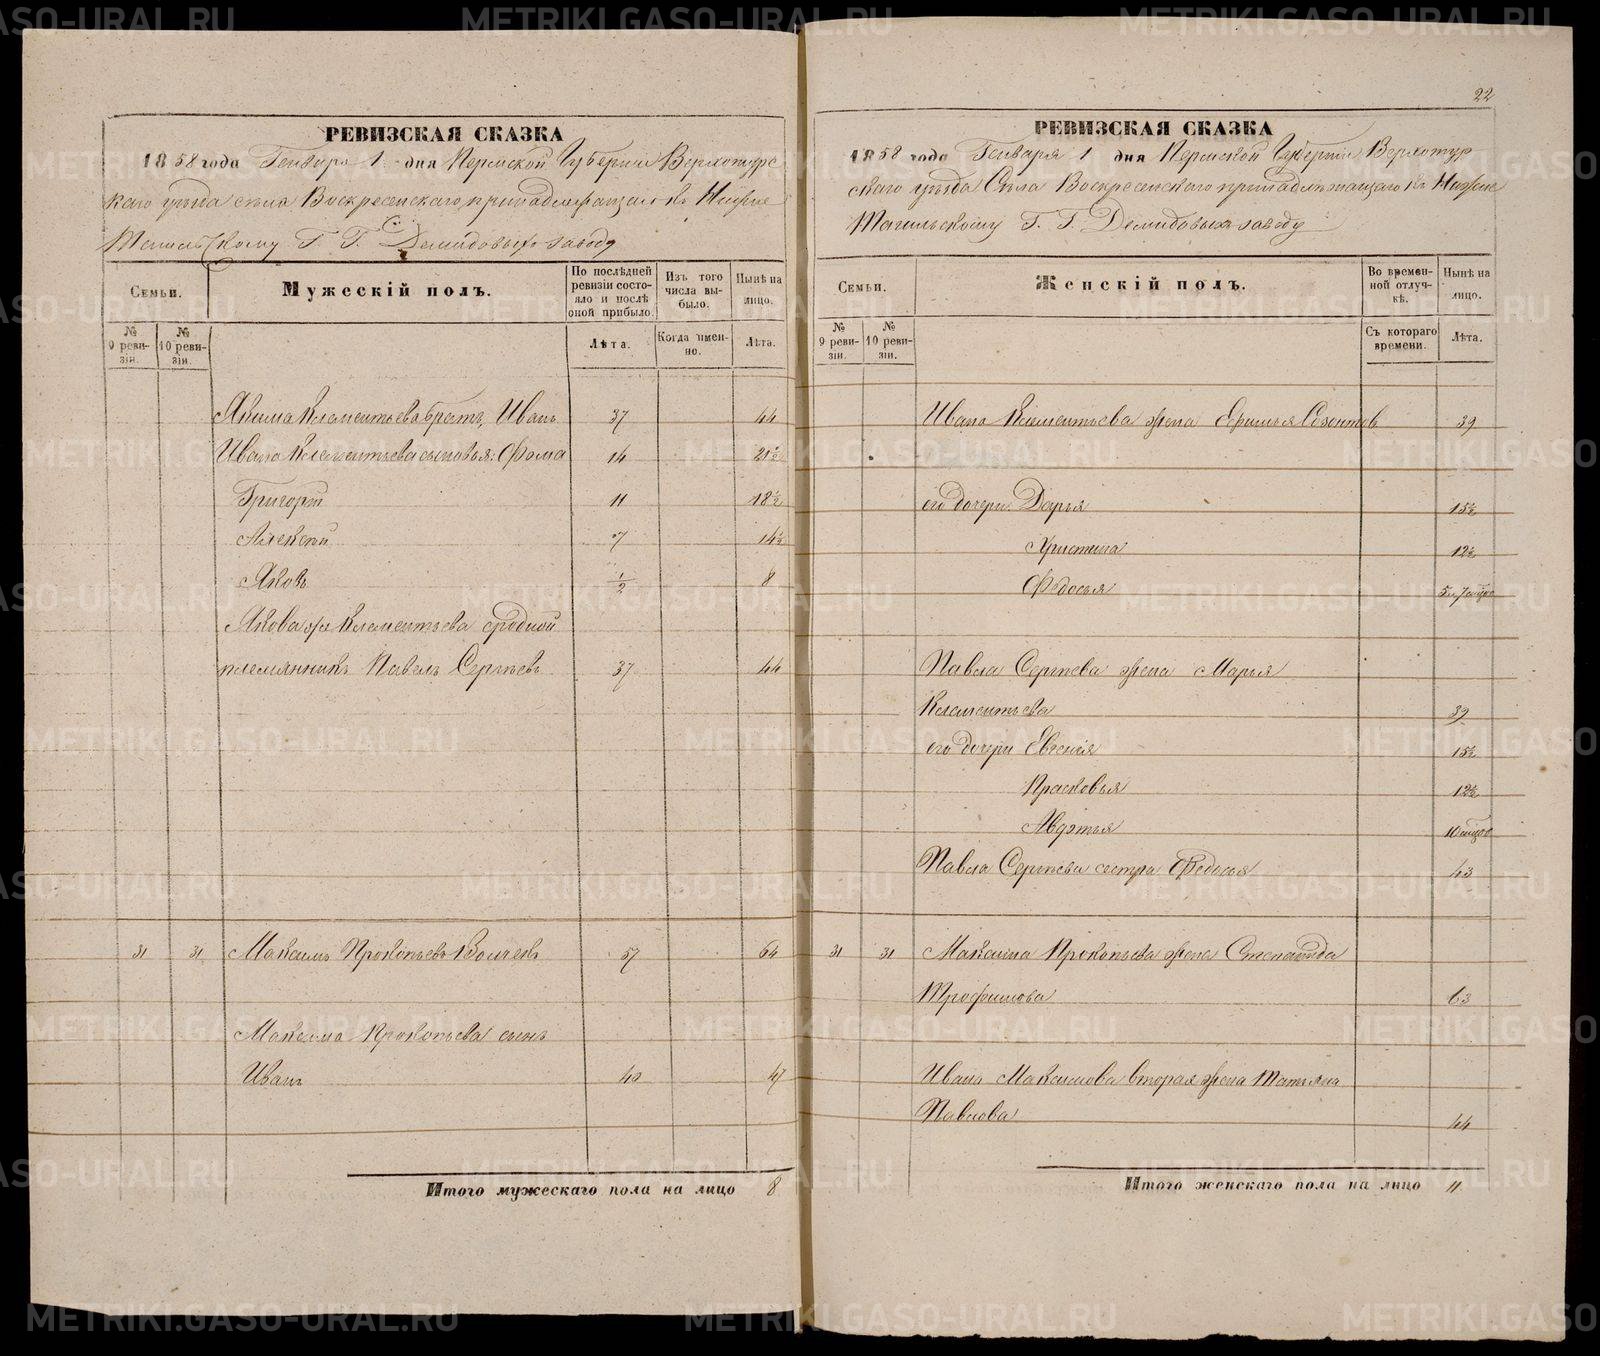 РЕВИЗСКАЯ СКАЗКА
1858 года Генваря 1 дня Пермской Губернии Верхотурс
каго уѣзда села Воскресенскаго, принадлежащаго къ Нижне
Тагильскому Г. Г. Демидовыхъ заводу
Семьи.
Мужескій полъ.
По послѣдней ревизіи состояло и послѣ оной прибыло.
Изъ того числа выбыло.
Нынѣ на лицо.
№ 9 ревизіи.
№ 10 ревизіи.
Лѣта.
Когда именно.
Лѣта.
Якима Клементьева братъ, Иванъ 37 44
Ивана Клементьева сыновья: Фома 14 21½
Григорій 11 18½
Алексѣй 7 14½
Яковъ ½ 8
Якова же Клементьева сродной
племянникъ Павелъ Сергѣевъ 37 44
31 31 Максимъ Прокопьевъ Волчекъ 57 64
Максима Прокопьева сынъ
Иванъ 40 47
Итого мужескаго пола на лицо 8
22
РЕВИЗСКАЯ СКАЗКА
1858 года Генваря 1 дня Пермской Губерніи Верхотур
скаго уѣзда Села Воскресенскаго принадлежащаго къ Нижне
Тагильскому Г. Г. Демидовыхъ заводу
Семьи.
Женскій полъ.
Во временной отлучкѣ.
Нынѣ на лицо.
№ 9 ревизіи.
№ 10 ревизіи.
Съ котораго времени.
Лѣта.
Ивана Клементьева жена 39
его дочери: Дарья 15½
Христина 12½
Ѳедосья
Павла Сергѣева жена Марья
Клементьева 39
его дочери Евгенія 15½
Прасковья 12½
Авдотья
Павла Сергѣева сестра Федосья 43
31 31 Максима Прокопьева жена Степанида
Трофимова 63
Ивана Максимова вторая жена Татьяна
Павлова 44
Итого женскаго пола на лицо 11
METRIKI.GASO-URAL.RU